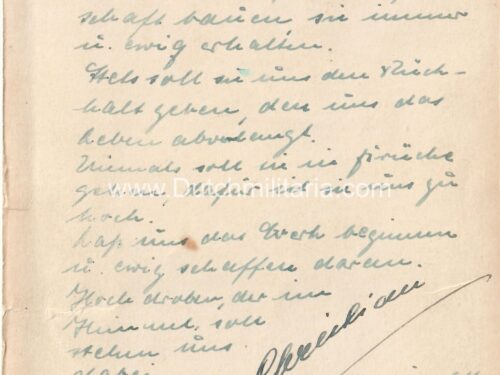 schaft bauen sie immer
u. ewig erhalten.
Stets soll sie uns den Rück-
halt geben, den uns das
Leben abverlangt.
Niemals soll sie in Brüche
gehen, dafür ist sie uns zu
hoch.
Laß uns das Werk beginnen
u. ewig schaffen daran.
Hoch droben, der im
Himmel, soll
stehen uns
dabei
www.Dutchmilitaria.com